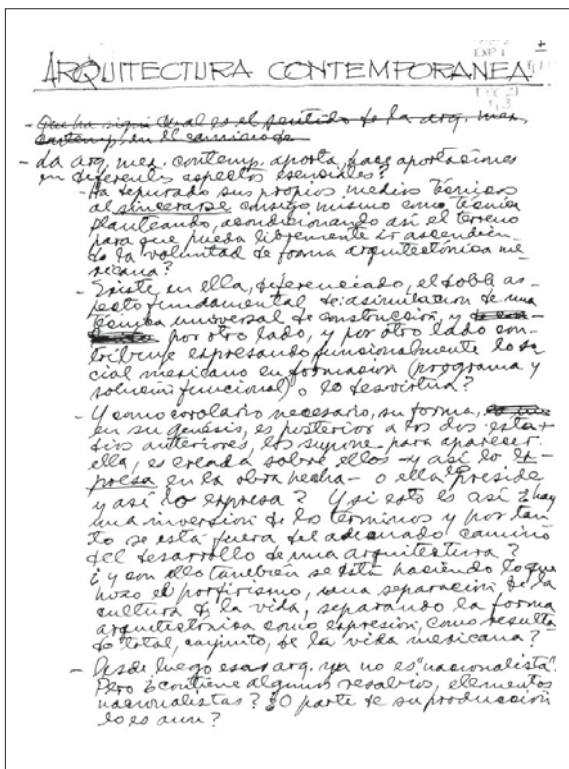 EXP 1
ARQUITECTURA CONTEMPORANEA
- Que ha signi Cual es el sentido de la arq. mex.
contemp. en el camino de
- La arq. mex. contemp. aporta, hace aportaciones
en diferentes aspectos esenciales?
- Ha depurado sus propios medios técnicos
al sincerarse consigo mismo como técnica
planteando, acondicionando así el terreno
para que pueda libremente ir ascendien-
do la voluntad de forma arquitectónica me-
xicana?
- Existe en ella, diferenciado, el doble as-
pecto fundamental de: asimilacion de una
técnica universal de construcción, y
por otro lado, y por otro lado con-
tribuye expresando funcionalmente lo so-
cial mexicano en formacion (programa y
solución funcional) o lo desvirtua?
- Y como corolario necesario, su forma,
en su genésis, es posterior a los dos esta-
dios anteriores, los supone para aparecer
ella, es creada sobre ellos - y así lo ex-
presa en la obra hecha - o ella preside
y así lo expresa? Y si esto es así ¿hay
una inversión de los términos y por tan-
to se está fuera del adecuado camino
del desarrollo de una arquitectura?
¿y con ello también se está haciendo lo que
hizo el porfirismo, una separación de la
cultura de la vida, separando la forma
arquitectónica como expresión, como resulta
do total, conjunto, de la vida mexicana?
- Desde luego esas arq. ya no es "nacionalista".
Pero ¿contiene algunos resabios, elementos
nacionalistas? ¿O parte de su producción
lo es aun?